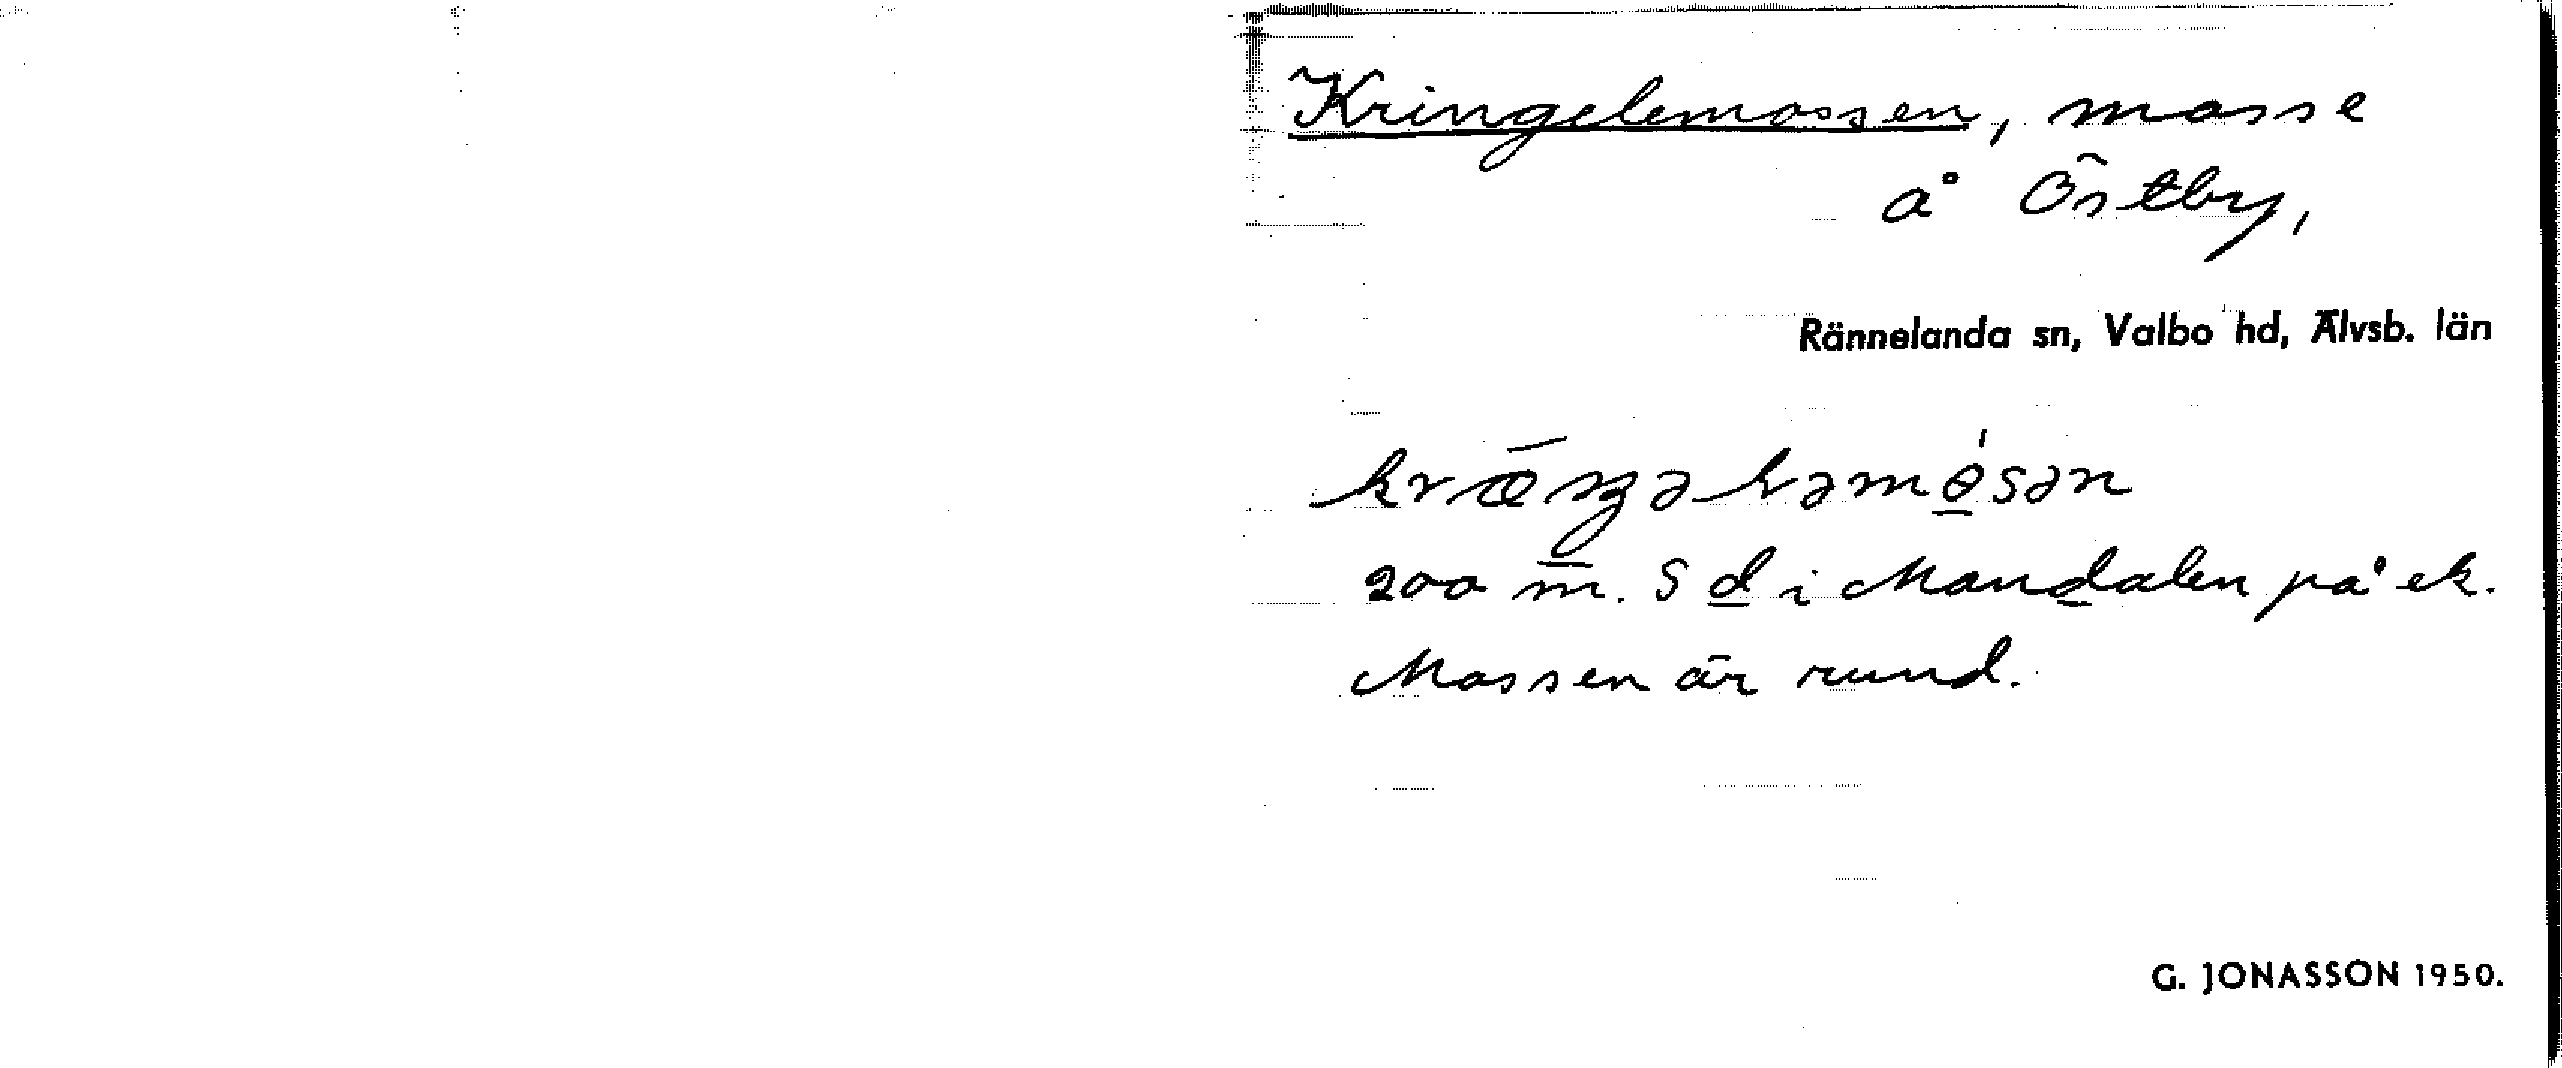 Kringelemossen, mosse
å Östby,
Rännelanda sn, Valbo hd, Älvsb. län
200 m. S d i Mandalen på ek.
Mossen är rund.
G. JONASSON 1950.